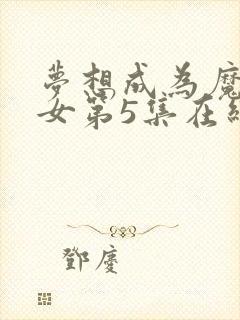 夢想成為魔
女第5集在
鄧慶